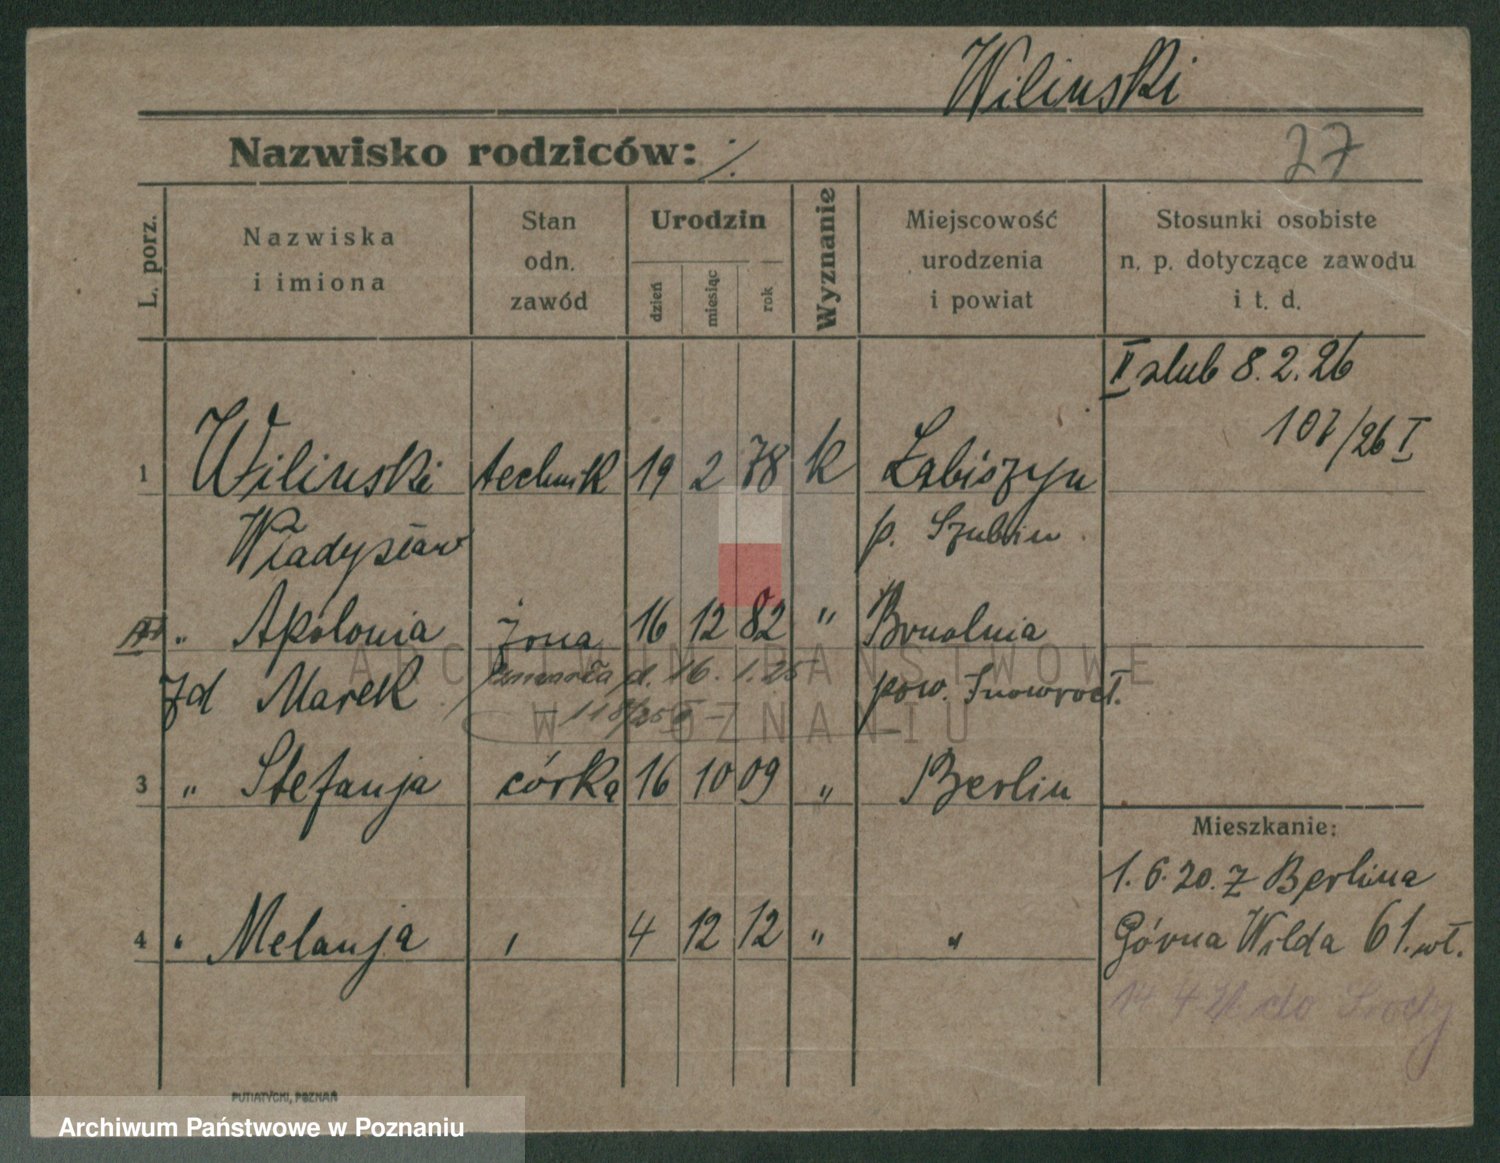 Wilinski
Nazwisko rodziców: ./.
27
L. porz.
Nazwiska
i imiona
Stan
odn.
zawód
Urodzin
dzień
miesiąc
rok
Wyznanie
Miejscowość
urodzenia
i powiat
Stosunki osobiste
n. p. dotyczące zawodu
i t. d.
II slub 8.2.26
107/26 I
1 Wilinski technik 19 2 78 k Łabiszyn
Władysław p. Szubin
" Apolonia żona 16 12 82 " Brudnia
zd Marek zmarła d. 16.1.25 pow. Inowrocł.
118/25
3 " Stefanja córka 16 10 09 " Berlin
Mieszkanie:
1.6.20. z Berlina
4 " Melanja " 4 12 12 " "
Górna Wilda 61. wł.
do Środy
PUTIATYCKI, POZNAŃ
ARCHIWUM PAŃSTWOWE
W POZNANIU
Archiwum Państwowe w Poznaniu